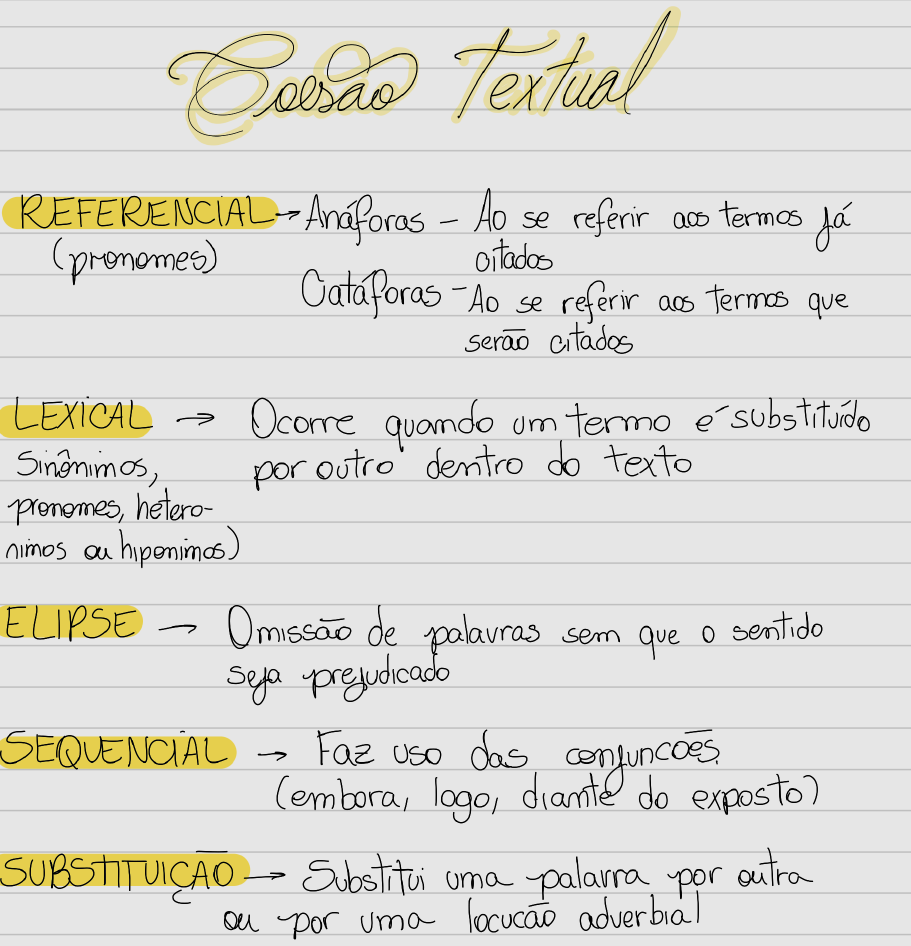 Coesão Textual
REFERENCIAL → Anáforas – Ao se referir aos termos já
(pronomes) citados
Catáforas – Ao se referir aos termos que
serão citados
LEXICAL → Ocorre quando um termo é substituído
Sinônimos, por outro dentro do texto
pronomes, hetero-
nimos ou hiponimos)
ELIPSE → Omissão de palavras sem que o sentido
seja prejudicado
SEQUENCIAL → Faz uso das conjuncões.
(embora, logo, diante do exposto)
SUBSTITUIÇÃO → Substitui uma palavra por outra
ou por uma locucão adverbial